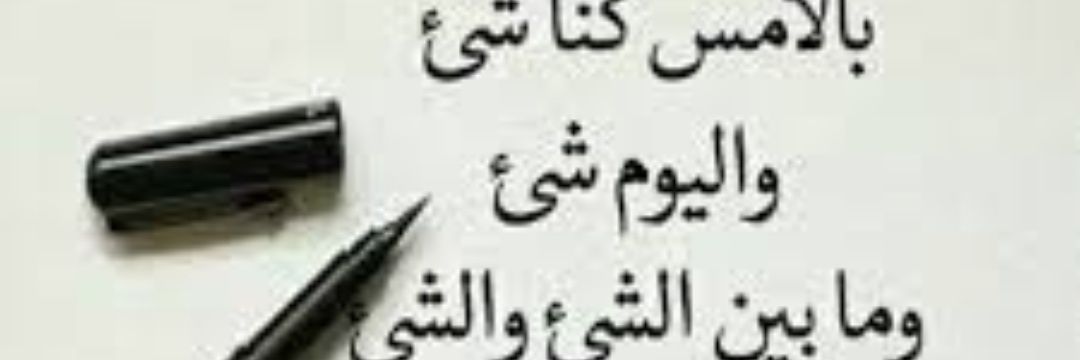 بالامس كنا شئ
واليوم شئ
وما بين الشئ والشئ